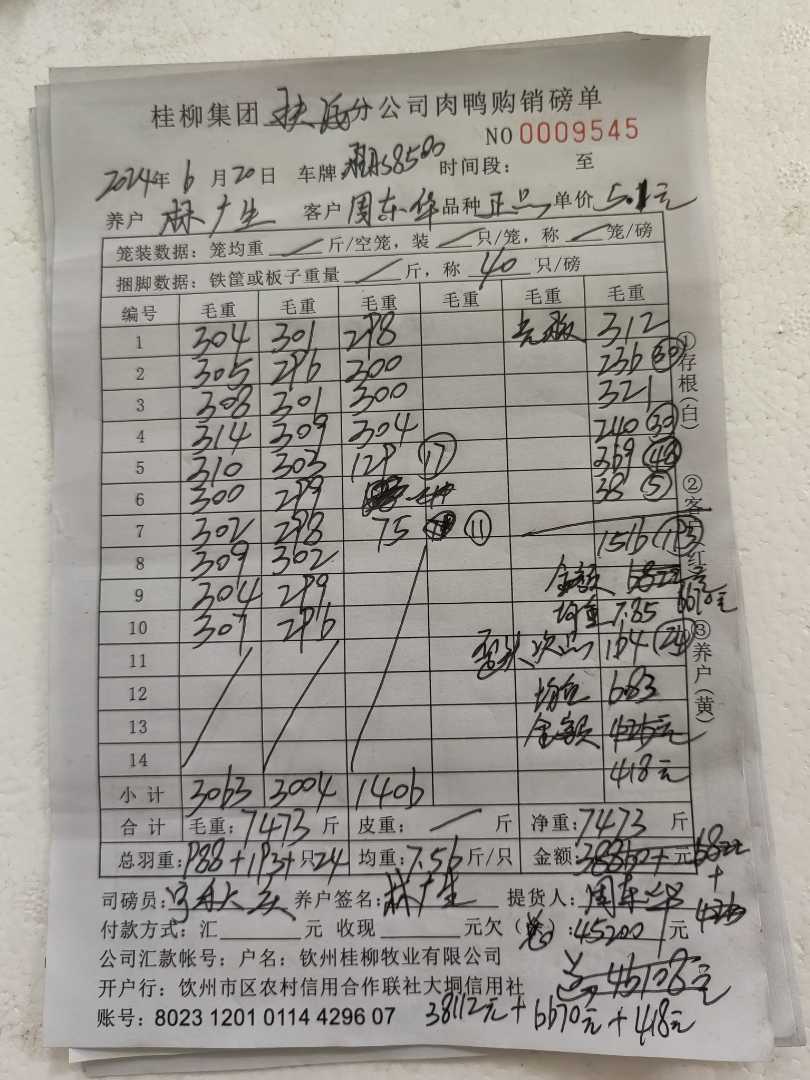 桂柳集团扶 分公司肉鸭购销磅单
NO 0009545
2024年6月20日 车牌 58500 时间段: 至
养户 林广生 客户 周东华 品种 正品 单价 5.1元
笼装数据: 笼均重 斤/空笼, 装 只/笼, 称 笼/磅
捆脚数据: 铁筐或板子重量 斤, 称 40 只/磅
编号 毛重 毛重 毛重 毛重 毛重 毛重
1 304 301 298 312
2 305 296 300 236 30
3 308 301 300 321
4 314 309 304 240 30
5 310 303 129 17 369 48
6 300 299 38 5
7 302 298 75 11 1516 193
8 309 302 金额 6670元
9 304 299 均重 7.85
10 307 296 次品 164 24
11
12 均重 6.83
13 金额 426元
14 418元
小计 3063 3004 1406
合计 毛重: 7473 斤 皮重: 斤 净重: 7473 斤
总羽重: 988+193+24 只 均重: 7.56 斤/只 金额: 38860+ 元 6822 + 426
司磅员: 养户签名: 林广生 提货人: 周东华
付款方式: 汇 元 收现 元 欠( ): 45200 元
公司汇款帐号: 户名: 钦州桂柳牧业有限公司
46108元
开户行: 钦州市区农村信用合作联社大垌信用社
账号: 8023 1201 0114 4296 07 38112元+6670元+418元
①存根(白)
②客户(红)
③养户(黄)